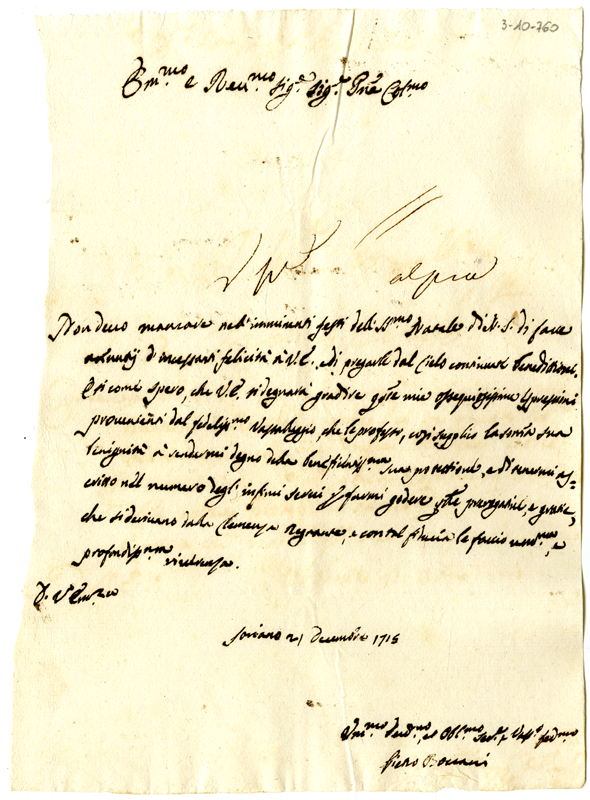 3-10-760
Em.mo e Reu.mo Sig.e Sig.r Prñe Col.mo
Non deuo mancare nell'imminenti feste dell SS.mo Natale di N. S. di fare
d'incessanti felicità à V.E. e di pregarle dal Cielo continuate benedizioni.
E si come spero, che V.E. si degnarà gradire q.ste mie ossequissime espressioni
prouenienti dal fedeliss.mo Vassallaggio, che le professo, così supplico la somma sua
benignità à rendermi degno della benefidatiss.ma sua protettione, e di tenermi as=
critto nel numero degl'infimi serui p farmi godere q.ste prerogatiue, e gratie,
che si deriuano dalla Clemenza Regnante, e con tal fiducia le faccio um.ma, e
profondiss.ma riuerenza.
D. V. Em.za
Soriano 21 Decembre 1715
Um.mo Deu.mo, et Obl.mo Ser.e e Vass.o fed.mo
Pietro